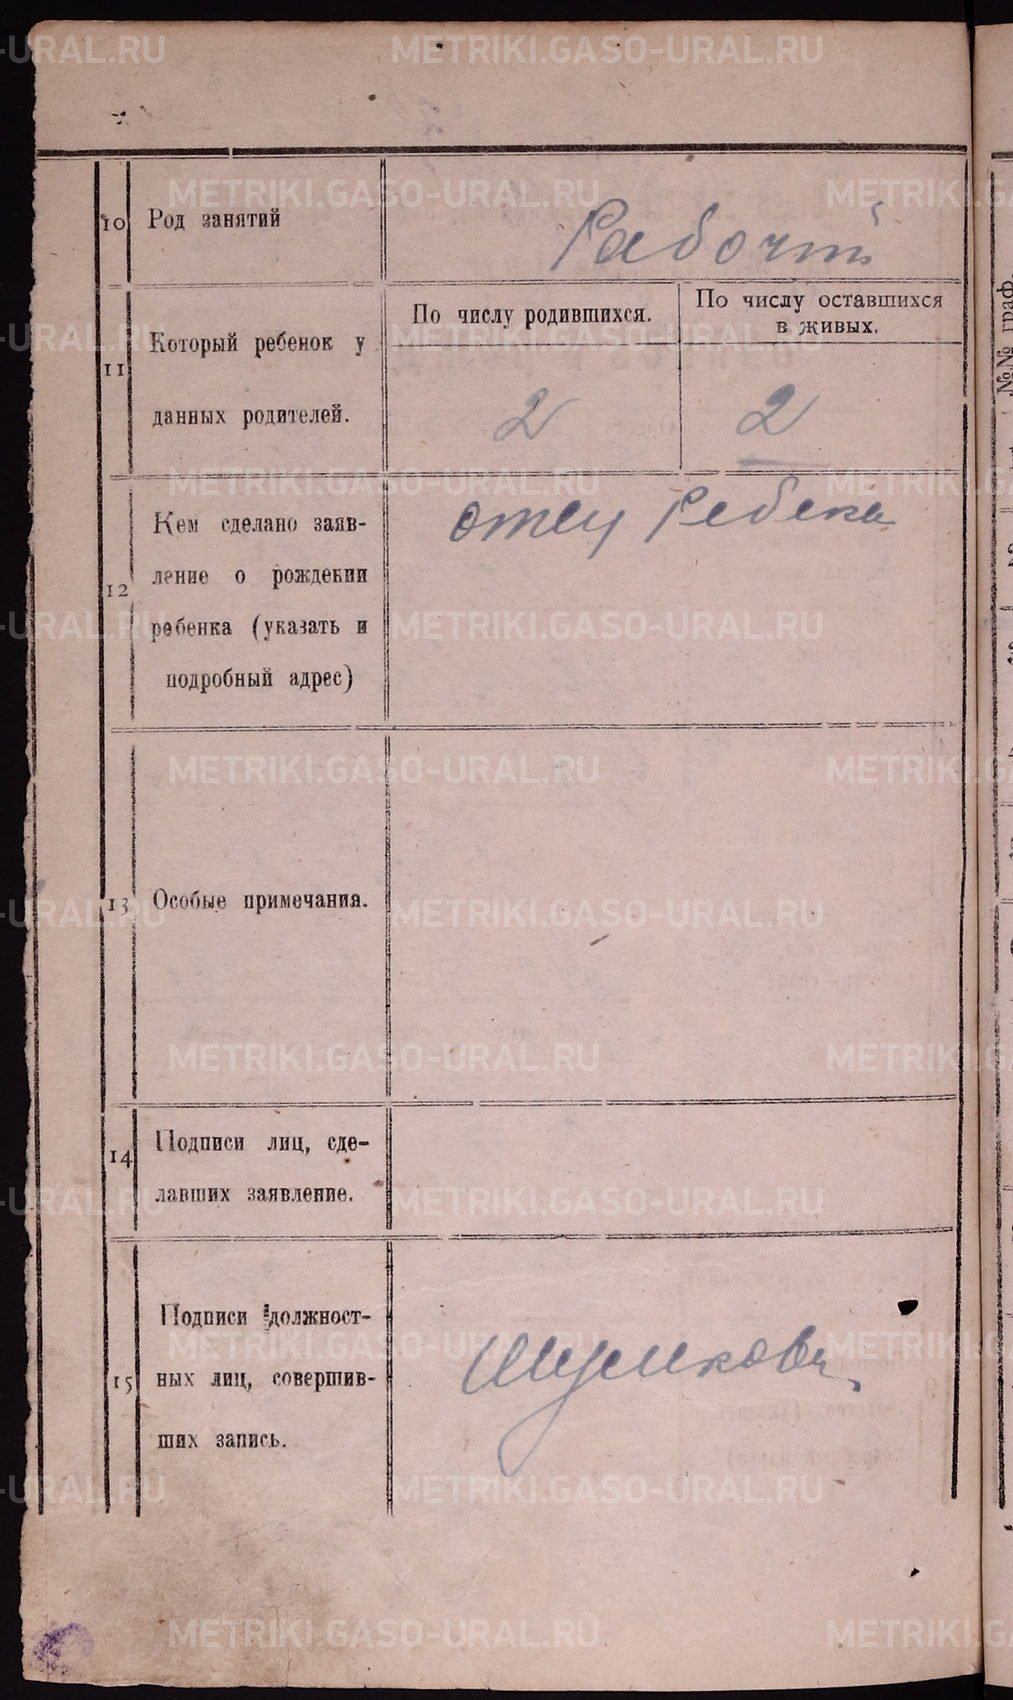 10 Род занятий Рабочий
11 Который ребенок у данных родителей.
По числу родившихся. По числу оставшихся
в живых.
2 2
12 Кем сделано заяв-
ление о рождении
ребенка (указать и
подробный адрес)
отец ребека
13 Особые примечания.
14 Подписи лиц, сде-
лавших заявление.
15 Подписи должност-
ных лиц, совершив-
ших запись.
№№ граф.
METRIKI.GASO-URAL.RU